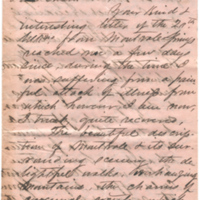 Your kind &
interesting letter of the 20th
from Montvale Springs
reached me a few days
since during the time I
was suffering from a pain
ful attack of illness from
which however I am now,
I trust quite recovered.
The beautiful descrip
tion of Montvale & its sur
rounding scenery its de
lightful walks,
mountains the charms of